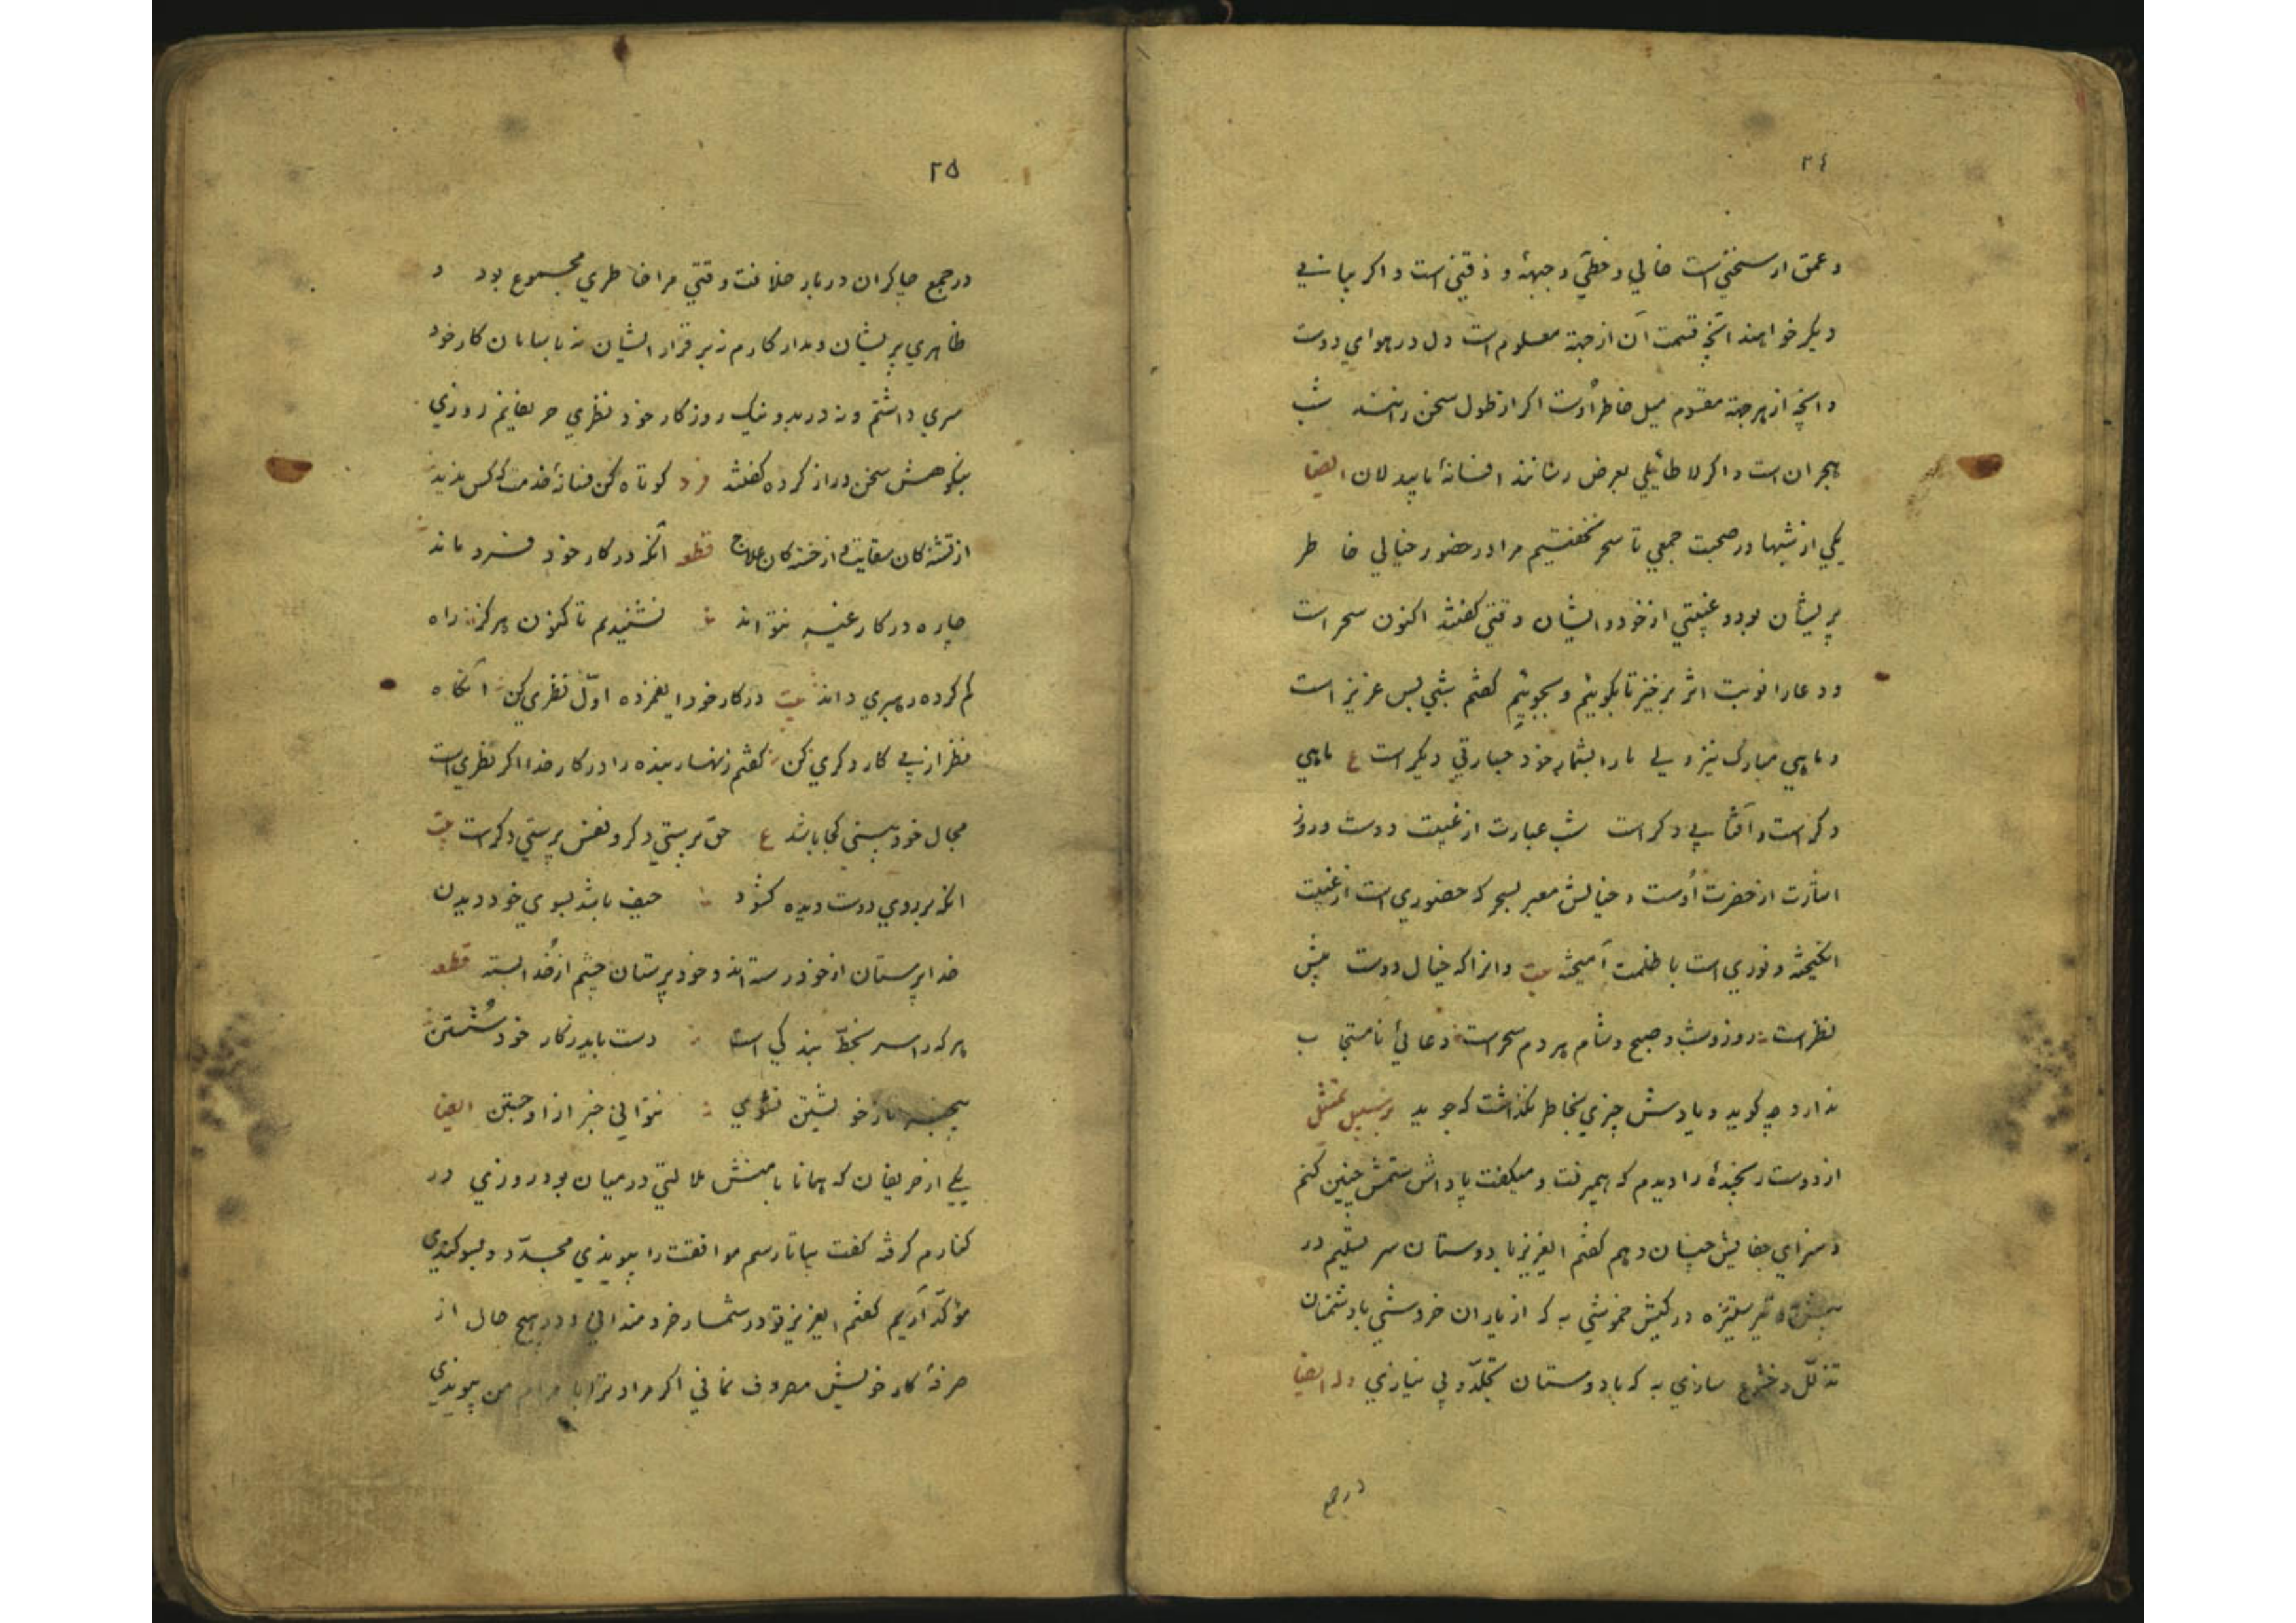 ٢٤
و عمق ار سخنی است خالي و خطي و جبهۀ و ذقنی است و اکر بیانی
دیکر خواهند آنچه قسمت آن از جهة معلوم است دل در هوای دوست
و آنچه از هر جهة مقسوم میل خاطر اوست اکر از طول سخن رانند شب
هجران است و اکر لا طائلي بعرض رسانند افسانۀ بیدلان ایضا
یکي از شبها در صحبت جمعي تا سحر نخفتیم مرا در حضور خیالي خاطر
پریشان بود و غیبتي از خود و ایشان وقتي کفتند اکنون سحر است
و دعا را نوبت اثر برخیز تا بکوئیم و بجوئیم کفتم شبي بس عزیز است
و ماهي مبارک نیز ولي ما را بشمار خود عبارتي دیکر است ع ماهي
دکر است و آفتابي دکر است شب عبارت از غیبت دوست و روز
اشارت از حضرت اوست و خیالش معبر بسحر که حضوري است از غیبت
انکیخته و نوري است با ظلمت آمیخته بیت و انرا که خیال دوست پیش
نظر است روز و شب و صبح و شام هر دم سحر است دعائي نامستجاب
ندارد چه کوید و یادش چیزي بخاطر نکذاشت که جوید بر سبیل تمثیل
از دوست رنجیدۀ را دیدم که همیرفت و میکفت پاداش ستمش چنین کنم
و سزاي جفایش چنان دهم کفتم ایعزیز با دوستان سر تسلیم در
پیش به تیر ستیزه در کیش خموشي به که از یاران خروشي با دشمنان
تذلل و خضوع سازي به که با دوستان تجلد و بي نیازي وله ایضا
در جمع
٢٥
در جمع چاکران دربار خلافت وقتي مرا خاطري مجموع بود و
ظاهري پریشان و مدار کارم نه بر قرار ایشان نه با سامان کار خود
سري داشتم و نه در بد و نیک روزکار خود نظري حریفانم روزي
بنکوهش سخن دراز کرده کفتند فرد کوتاه کن فسانۀ خدمت که کس ندید
از تشنه کان سقایت و از خسته کان علاج قطعه آنکه در کار خود فرو ماند
چاره در کار غیر نتواند نشنیدم تا کنون هرکز راه
کم کرده رهبري داند بیت در کار خود ایغمزده اول نظري کن آنکاه
نظر از پي کار دکري کن کفتم زنهار بنده را در کار خدا اکر نظري است
مجال خود بیني کجا باشد ع حق پرستي دکر و نفس پرستي دکر است بیت
آنکه بر روي دوست دیده کشود حیف باشد بسوي خود دیدن
خدا پرستان از خود رسته اند و خود پرستان چشم از خدا بسته قطعه
هر که را سر بخط بندکي است دست باید ز کار خود شستن
بیخبر تا ز خویشتن نشوي نتواني خبر از او جستن ایضا
یکي از حریفان که همانا با منش ملالتي در میان بود روزي در
کنارم کرفته کفت بیا تا رسم موافقت را بپیوندي مجدد و بسوکندي
مؤکد آریم کفتم ایعزیز تو در شمار خردمنداني و در هیچ حال از
صرفۀ کار خویش مصروف نماني اکر مراد ترا با مرام من پیوندي